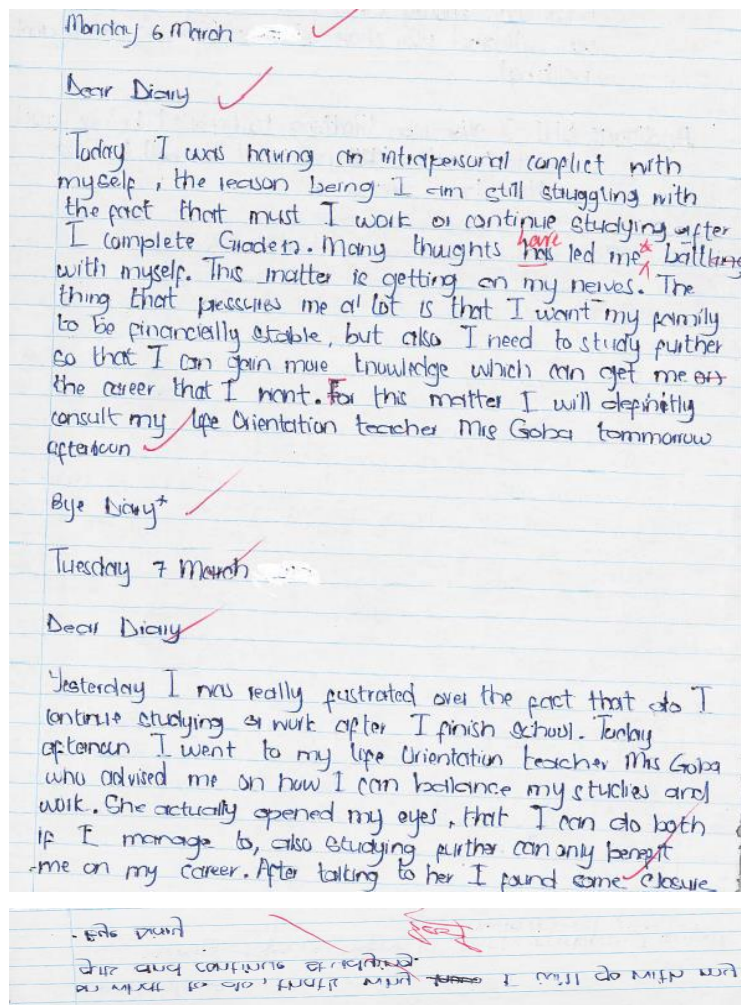 Monday 6 March
Dear Diary
Today I was having an intrapersonal conflict with
myself, the reason being I am still struggling with
the fact that must I work or continue studying after
have
I complete Grade 12. Many thoughts has led me battling
with myself. This matter is getting on my nerves. The
thing that pressures me a lot is that I want my family
to be financially stable, but also I need to study further
so that I can gain more knowledge which can get me
the career that I want. For this matter I will definitly
consult my Life Orientation teacher Mrs Goba tommorrow
afternoon
Bye Diary
Tuesday 7 March
Dear Diary
Yesterday I was really fustrated over the fact that do I
continue studying or work after I finish school. Today
afternoon I went to my Life Orientation teacher Mrs Goba
who advised me on how I can ballance my studies and
work. She actually opened my eyes, that I can do both
if I manage to, also studying further can only benefit
me on my career. After talking to her I found some closure
on what to do, that's why I will go with my
guts and continue studying.
Bye Diary